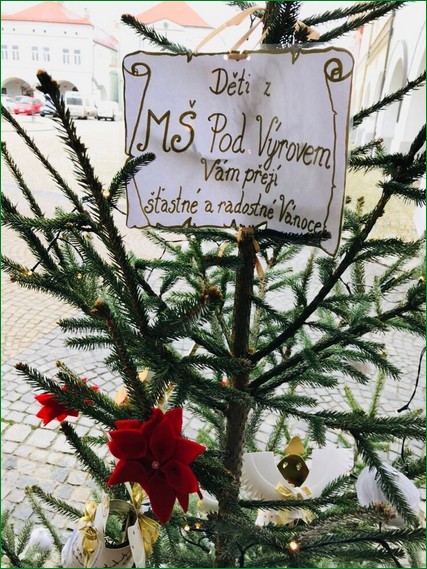 Děti z
MŠ Pod Výrovem
Vám přejí
šťastné a radostné Vánoce!